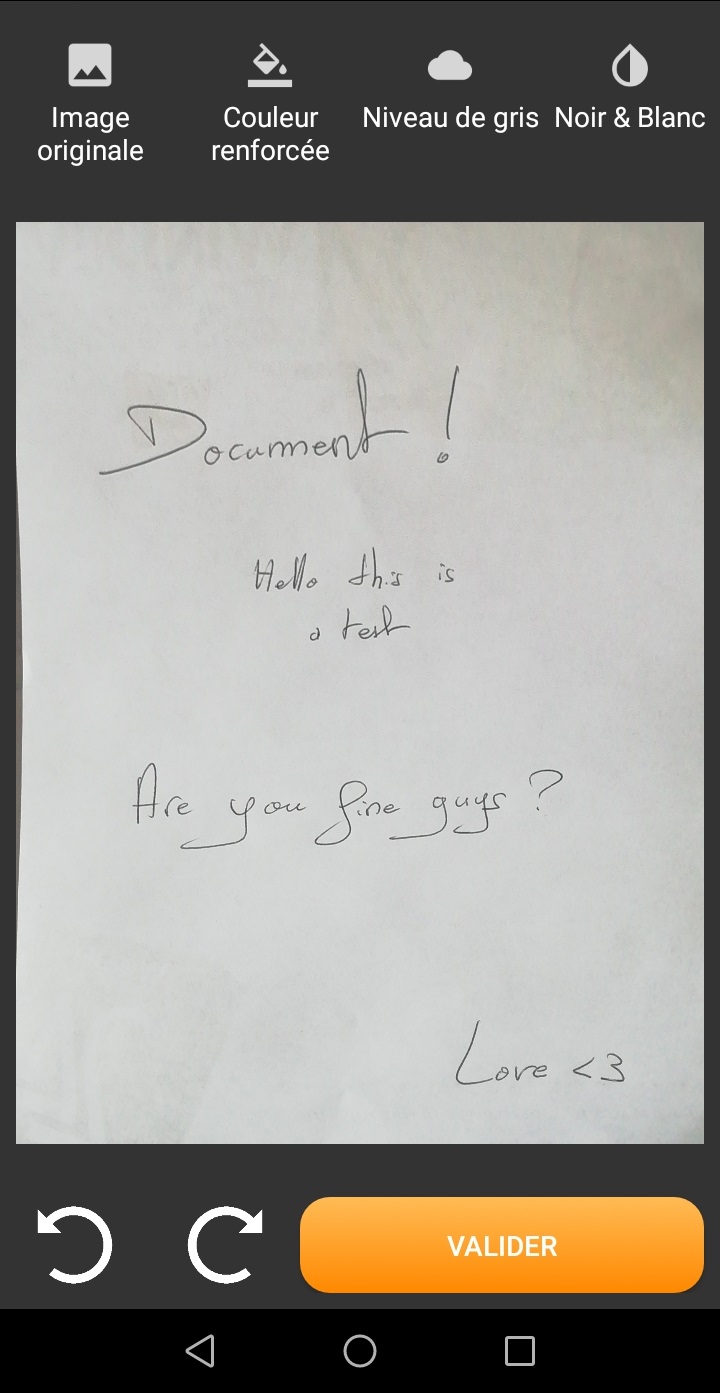 Image
originale
Couleur
renforcée
Niveau de gris
Noir & Blanc
Document !
Hello this is
a test
Are you fine guys ?
Love <3
VALIDER